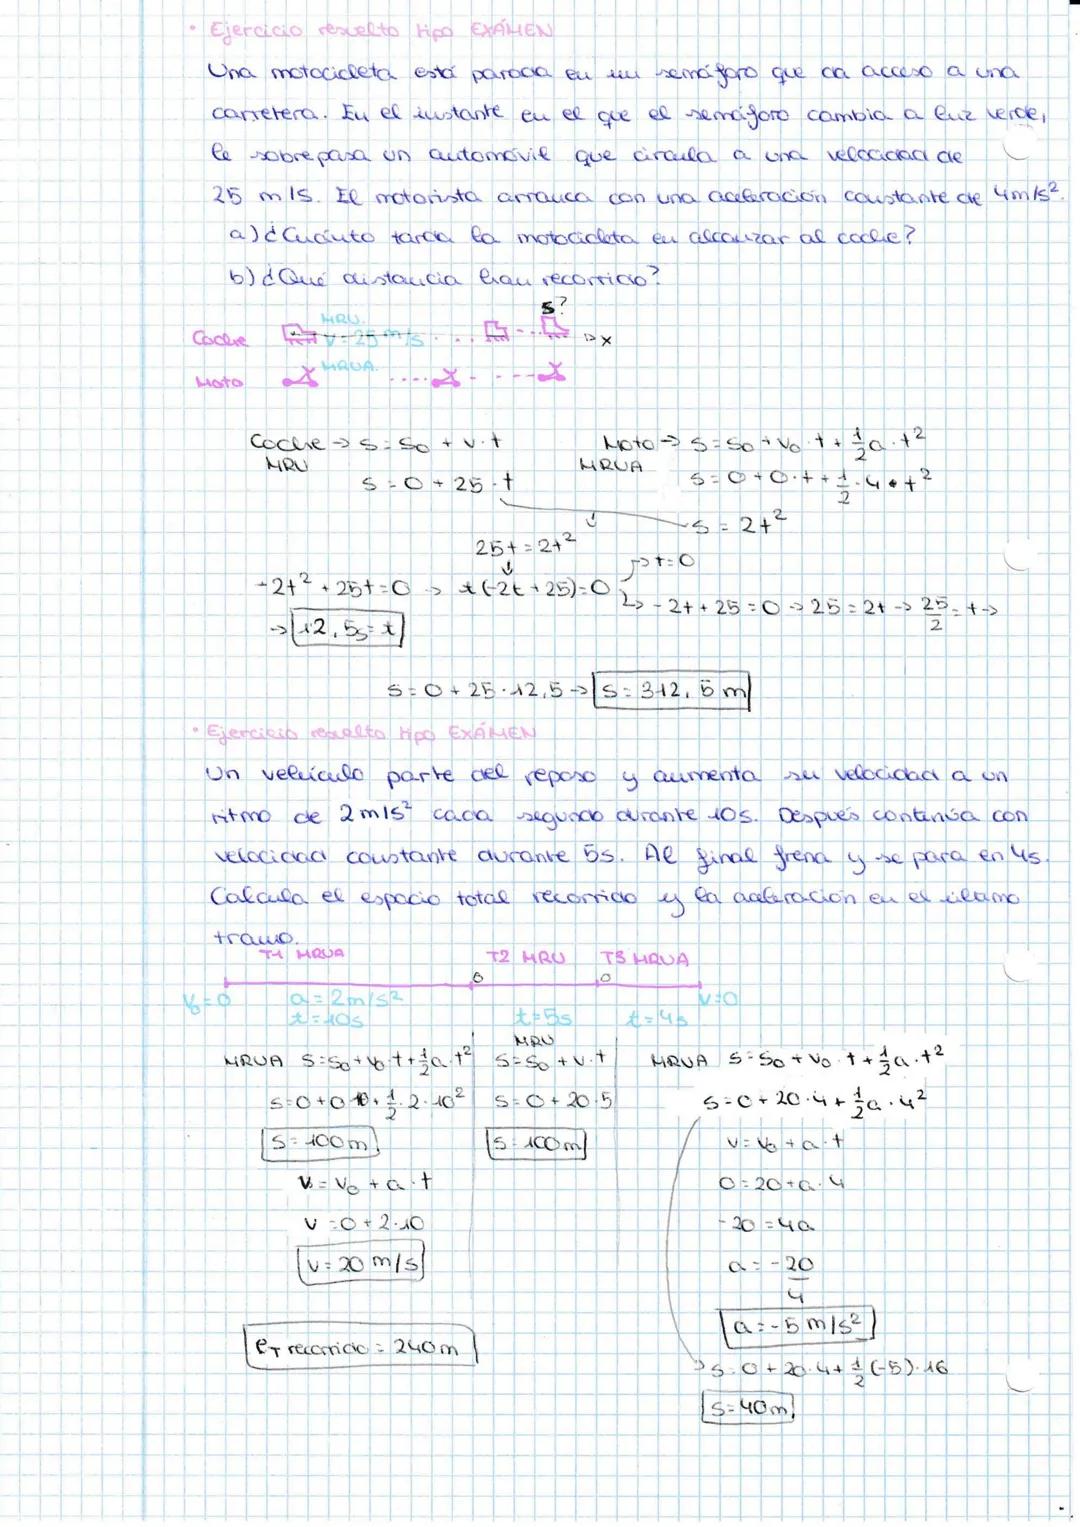 • Ejercicio resuelto tipo EXÁMEN
Una motocicleta está parada en un semáforo que da acceso a una
carretera. En el instante en el que el semáforo cambia a luz verde,
le sobrepasa un automóvil que circula a una velocidad de
25 m/s. El motorista arranca con una aceleración constante de 4m/s².
a) ¿Cuánto tarda la motocicleta en alcanzar al coche?
b) ¿Qué distancia han recorrido?
S?
MRU.
Coche v=25 m/s ... ... x
Moto MRUA. .... - ---
Coche → S=S₀ + v·t Moto → S=S₀+V₀·t+½a·t²
MRU MRUA
S=0+25·t S=0+0·t+½·4·t²
S=2t²
25t=2t²
→t=0
-2t²+25t=0 → t(-2t+25)=0 → -2t+25=0 → 25=2t → 25/2=t →
→ 12,5s=t
S=0+25·12,5 → S=312,5 m
• Ejercicio resuelto tipo EXÁMEN
Un vehículo parte del reposo y aumenta su velocidad a un
ritmo de 2m/s² cada segundo durante 10s. Después continúa con
velocidad constante durante 5s. Al final frena y se para en 4s.
Calcula el espacio total recorrido y la aceleración en el último
tramo.
T1 MRUA T2 MRU T3 MRUA
V₀=0 a=2m/s² V=0
t=10s t=5s t=4s
MRU
MRUA S=S₀+V₀·t+½a·t² S=S₀+v·t MRUA S=S₀+V₀·t+½a·t²
S=0+0·10+½·2·10² S=0+20·5 S=0+20·4+½a·4²
S=100m S=100m V=V₀+a·t
V=V₀+a·t 0=20+a·4
V=0+2·10 -20=4a
V=20 m/s a=-20/4
a=-5m/s²
eT recorrido=240m
S=0+20·4+½(-5)·16
S=40m